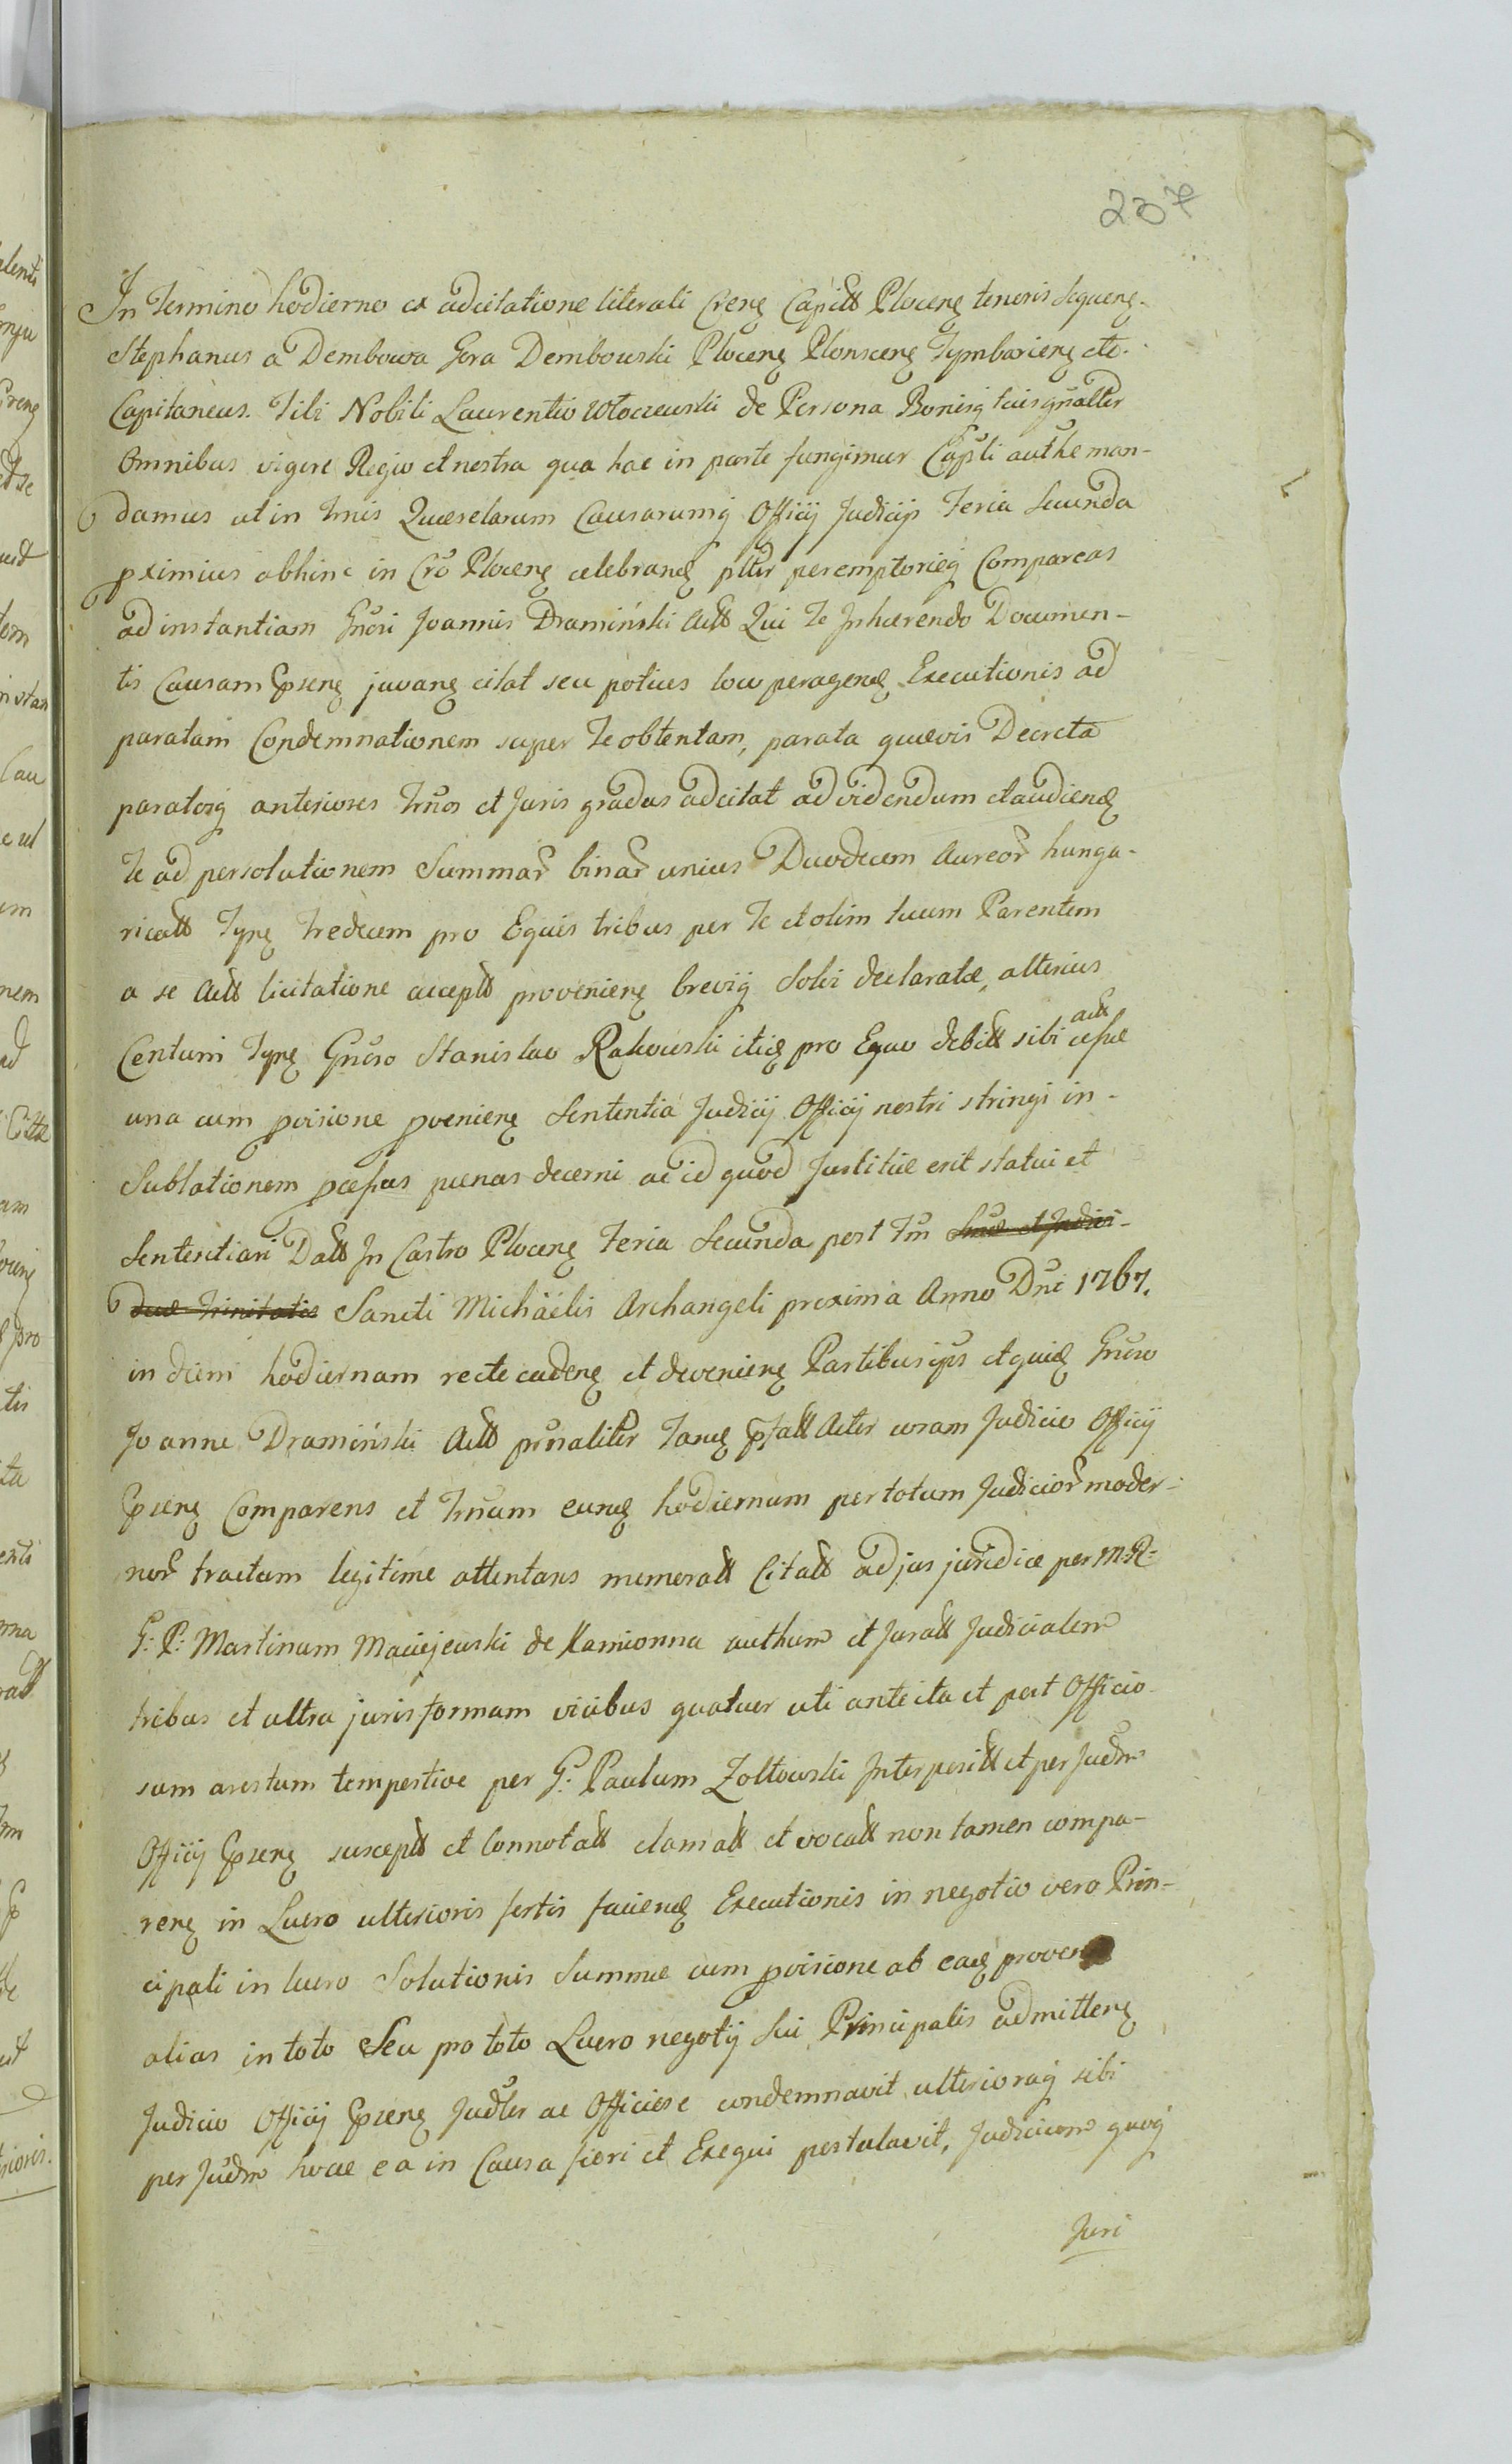 237
In Termino hodierno ex adcitatione literali Crens Capitt Plocens tenoris sequens.
Stephanus a Dembowa Gora Dembowski Plocens Plonscens Tymbariens etc.
Capitaneus. Tibi Nobili Laurentio Włoczewski de Persona Bonisq tuis gñalter
Omnibus vigore Regio et nostra qua hac in parte fungimur Capsli authe man-
damus ut in Tmis Querelarum Causarumq Officij Judicijs Feria Secunda
pximius abhinc in Cro Plocens celebrand pltr peremptorieq Compareas
ad instantiam Gnosi Joannis Dramiński Actt Qui Te Inhærendo Documen-
tis Causam Ppsens juvans citat seu potius loco peragend Executionis ad
paratam Condemnationem super Te obtentam, parata quævis Decreta
paratosq anteriores Trnos et Juris gradus adcitat ad videndum et audiend
Te ad persolutionem Summar binar unius Duodecem Aureor hunga-
ricatt Tynf Tredecem pro Equis tribus per Te et olim tuum Parentem
a se Actt licitatione acceptt proveniens breviq Solvi declaratæ, alterius
Centum Tynf Gnoso Stanislao Rakowski itid pro Equo debitt sibi actt cessæ
una cum pvisione pveniens Sententia Judicij Officij nostri stringi in-
Sublationem ppssas pænas decerni ac id quod Justitiæ erit statui et
Sententiari Datt In Castro Plocens Feria Secunda post Fm Snæ et Indivi-
duæ Trinitatis Sancti Michäelis Archangeli proxima Anno Dni 1767.
in diem hodiernam recte cadens et deveniens Partibus ijs et quid Gnoso
Joanne Dramiński Actt psnaliter Tand psfatt Acter coram Judicio Officij
Ppsens Comparens et Trnum eund hodiernum per totum Judicior moder-
nor tractum legitime attentans memoratt Citatt ad jus juridice per M: R:
G: P: Martinum Maciejewski de Kamionna authum et Juratt Judicialem
tribus et ultra juris formam vicibus quatuor uti ante ita et post Officio-
sum arestum tempestive per G: Paulum Zołtowski Interpositt et per Judm
Officij Ppsens susceptt et Connotatt clamatt et vocatt non tamen compa-
rens in Lucro ulterioris fortis faciend Executionis in negotio vero Prin-
cipali in lucro Solutionis Summæ cum pvisione ab ead proven
alias in toto Seu pro toto Lucro negotij sui Principalis admittens
Judicio Officij Ppsens Judlr ac Officiose condemnavit ulterioraq sibi
per Judm hocce ea in Causa fieri et Exequi postulavit, Judicium quoq
Juri